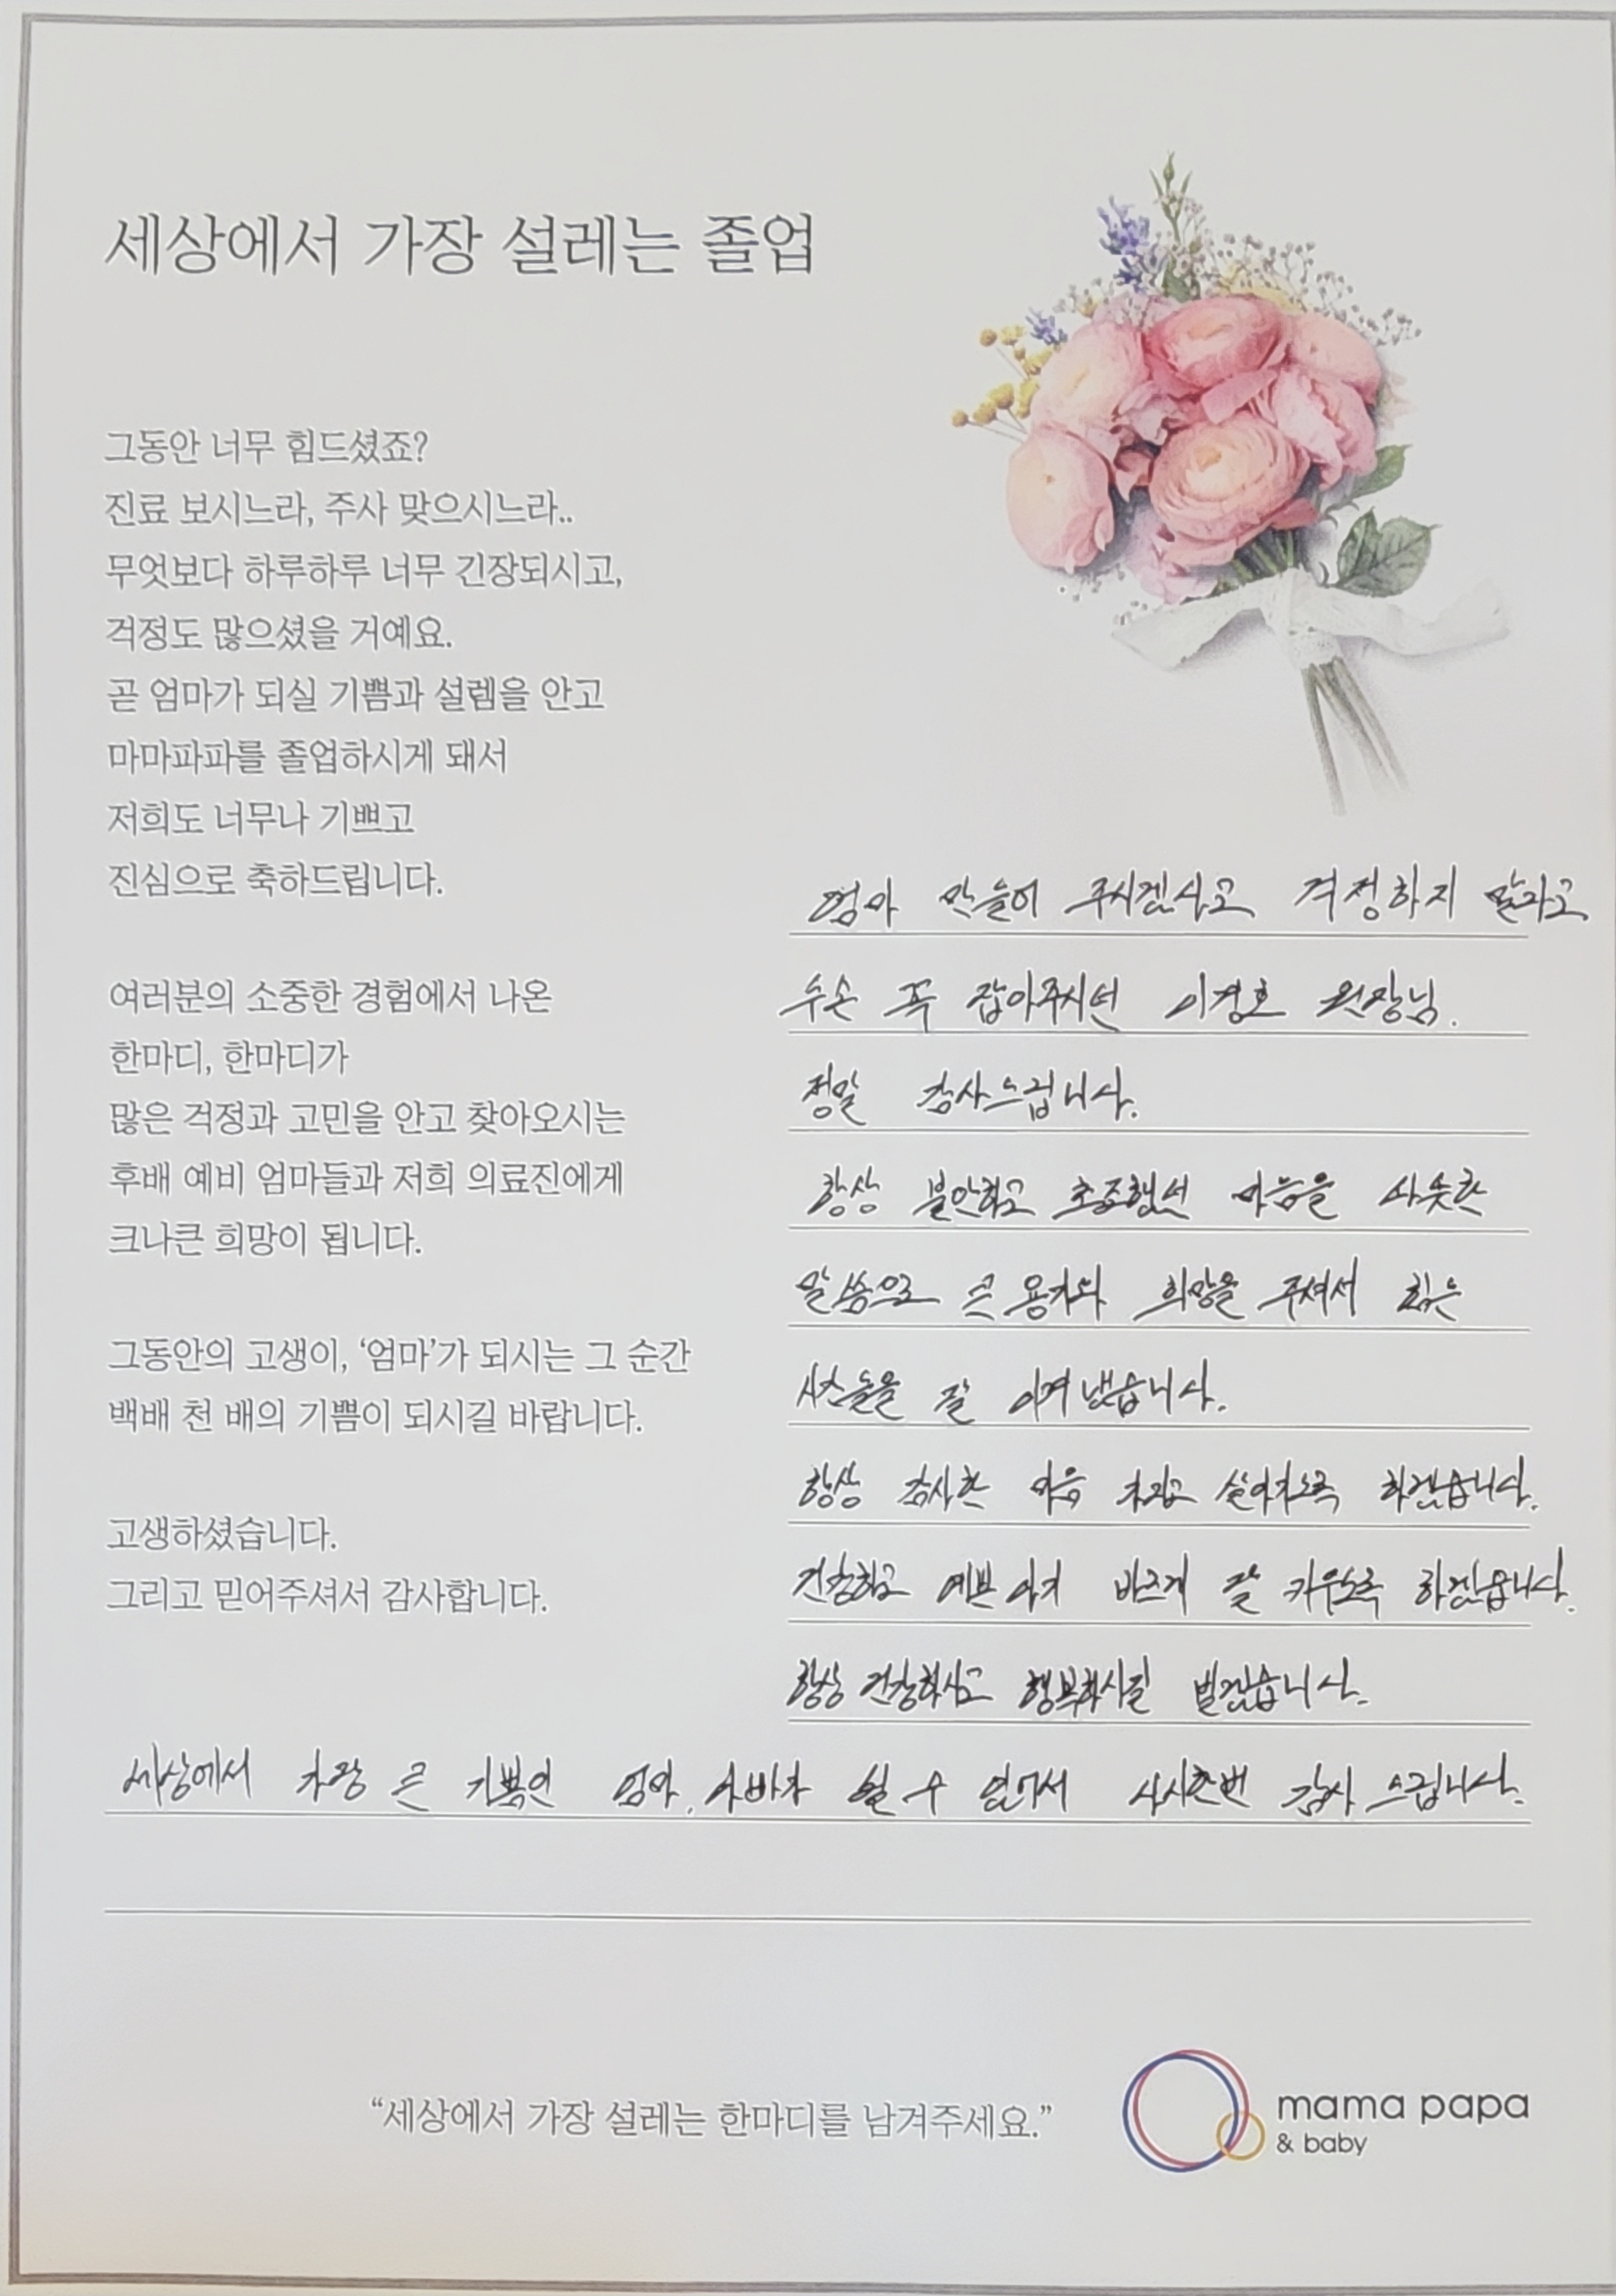 세상에서 가장 설레는 졸업
그동안 너무 힘드셨죠?
진료 보시느라, 주사 맞으시느라..
무엇보다 하루하루 너무 긴장되시고,
걱정도 많으셨을 거예요.
곧 엄마가 되실 기쁨과 설렘을 안고
마마파파를 졸업하시게 돼서
저희도 너무나 기쁘고
진심으로 축하드립니다.
여러분의 소중한 경험에서 나온
한마디, 한마디가
많은 걱정과 고민을 안고 찾아오시는
후배 예비 엄마들과 저희 의료진에게
크나큰 희망이 됩니다.
그동안의 고생이, ‘엄마’가 되시는 그 순간
백배 천 배의 기쁨이 되시길 바랍니다.
고생하셨습니다.
그리고 믿어주셔서 감사합니다.
엄마 만들어 주시겠다고 걱정하지 말라고
두손 꼭 잡아주시던 이경호 원장님.
정말 감사드립니다.
항상 불안하고 초조했던 마음을 따뜻한
말씀으로 큰 용기와 희망을 주셔서 힘든
시간들을 잘 이겨냈습니다.
항상 감사한 마음 가지고 살아가도록 하겠습니다.
건강하고 예쁜 아기 바르게 잘 키우도록 하겠습니다.
항상 건강하시고 행복하시길 빌겠습니다.
세상에서 가장 큰 기쁨인 엄마, 아빠가 될 수 있어서 다시한번 감사드립니다.
“세상에서 가장 설레는 한마디를 남겨주세요.”
mama papa
& baby